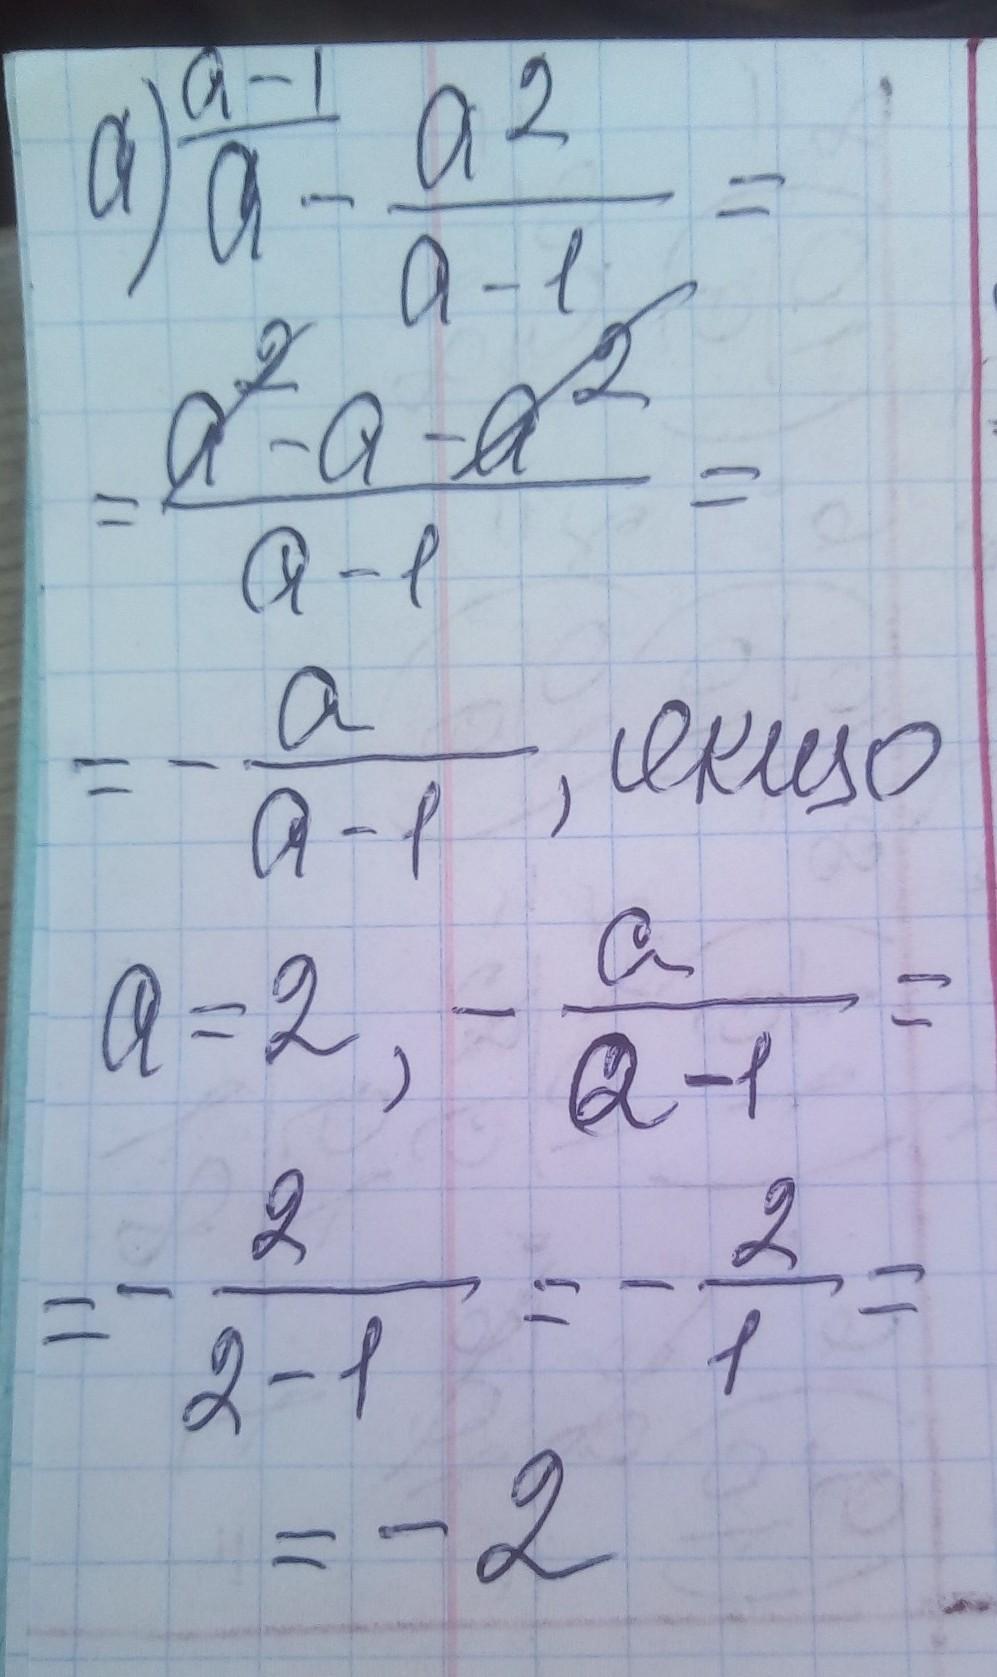 а) a-1/a - a²/a-1 =
= a²-a-a²/a-1 =
= - a/a-1, якщо
a=2, - a/a-1 =
= - 2/2-1 = - 2/1 =
= -2